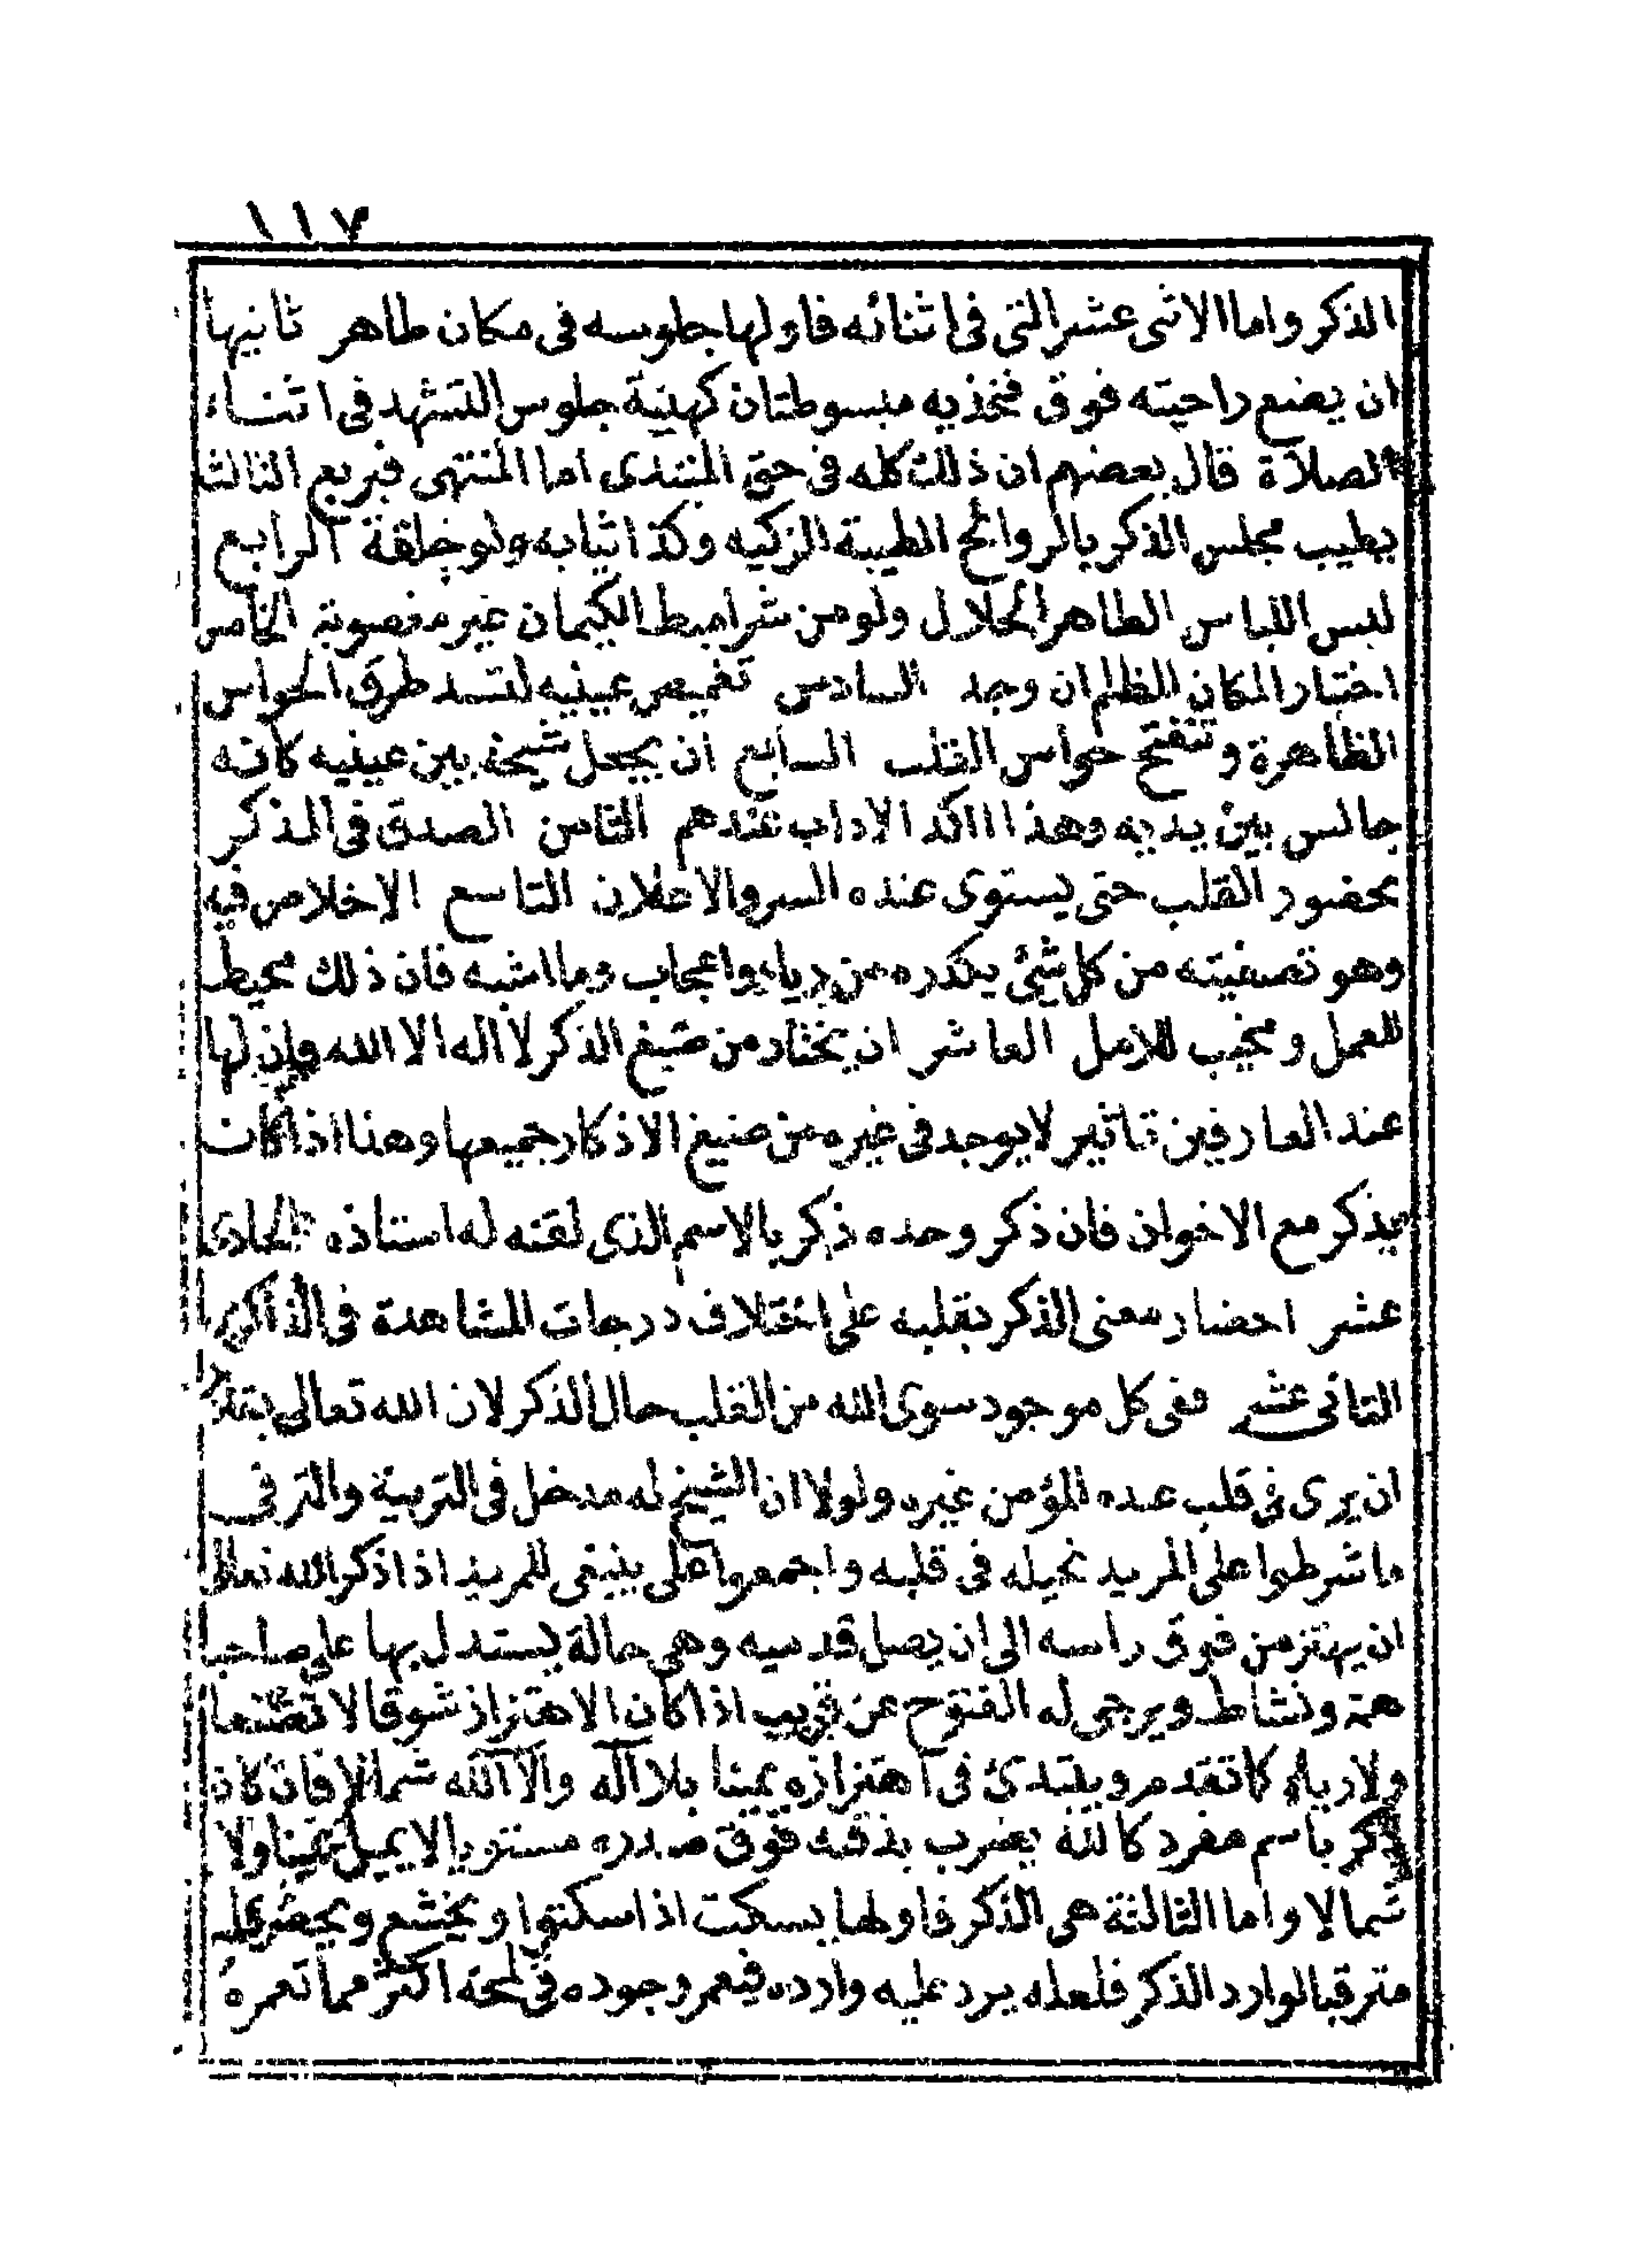 ١١٧
الذكر واما الاثنى عشر التى فى اثنائه فاولها جلوسه فى مكان طاهر ثانيها
ان يضع راحيته فوق فخذيه مبسوطتان كهيئة جلوس التشهد فى اثناء
الصلاة قال بعضهم ان ذلك كله فى حق المبتدى اما المنتهى فيربع الثالث
يطيب مجلس الذكر بالروائح الطيبة الزكيه وكذا ثيابه ولو خلقة الرابع
لبس اللباس الطاهر الحلال ولو من شراميط الكيمان غير مغصوبة الخامس
اختيار المكان المظلم ان وجد السادس تغميص عينيه لتسد طرق الحواس
الظاهرة وتنفتح حواس القلب السابع ان يجعل شيخه بين عينيه كانه
جالس بين يديه وهذا اكد الاداب عندهم الثامن الصدق فى الذكر
بحضور القلب حتى يستوى عنده السر والاعلان التاسع الاخلاص فيه
وهو تصفيته من كل شئ يكدره من رياء واعجاب وما اشبه فان ذلك محيط
للعمل ومخيب للامل العاشر ان يختار من صيغ الذكر لا اله الا الله فان لها
عند العارفين تاثير لا يوجد فى غيره من صيغ الاذكار جميعها وهذا اذا كان
يذكر مع الاخوان فان ذكر وحده ذكر بالاسم الذى لقنه له استاذه الحادى
عشر احضار معنى الذكر بقلبه على اختلاف درجات المشاهدة فى الذاكرين
الثانى عشر نفى كل موجود سوى الله من القلب حال الذكر لان الله تعالى
ان يرى فى قلب عبده المؤمن غيره ولولا ان الشيخ له مدخل فى التربية والترقى
ما شرطوا على المريد تخيله فى قلبه واجمعوا على ينبغى للمريد اذا ذكر الله تعالى
ان يهتز من فوق راسه الى ان يصل قدميه وهى حالة يستدل بها على صاحبها
همة ونشاط ويرجى له الفتوح عن قريب اذا كان الاهتزاز شوقا لا تصنعا
ولا رياء كما تقدم ويبتدئ فى اهتزازه يمينا بلا اله والا الله شمالا فان كان
ذكر باسم مفرد كالله يضرب بذقنه فوق صدره مستويا لا يميل يمينا ولا
شمالا واما الثالثة هى الذكر فاولها يسكت اذا سكتوا ويخشع ويحضر قلبه
مترقبا لوارد الذكر فلعله يرد عليه وارده فيعمر وجوده فى لمحة اكثر مما تعمره